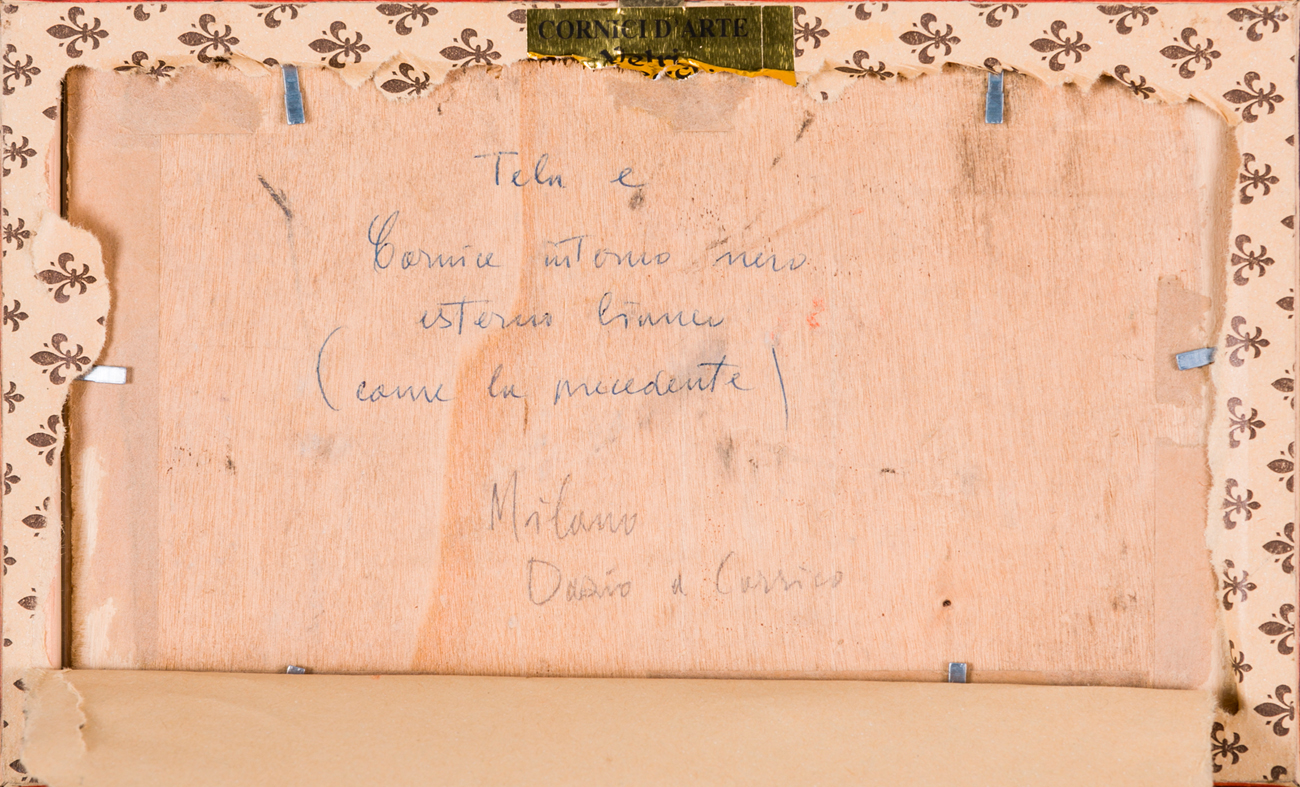 CORNICI D'ARTE
Vetri
Tela e
Cornice intorno nero
esterno bianco
(come la precedente)
Milano
Dazio a Corrico